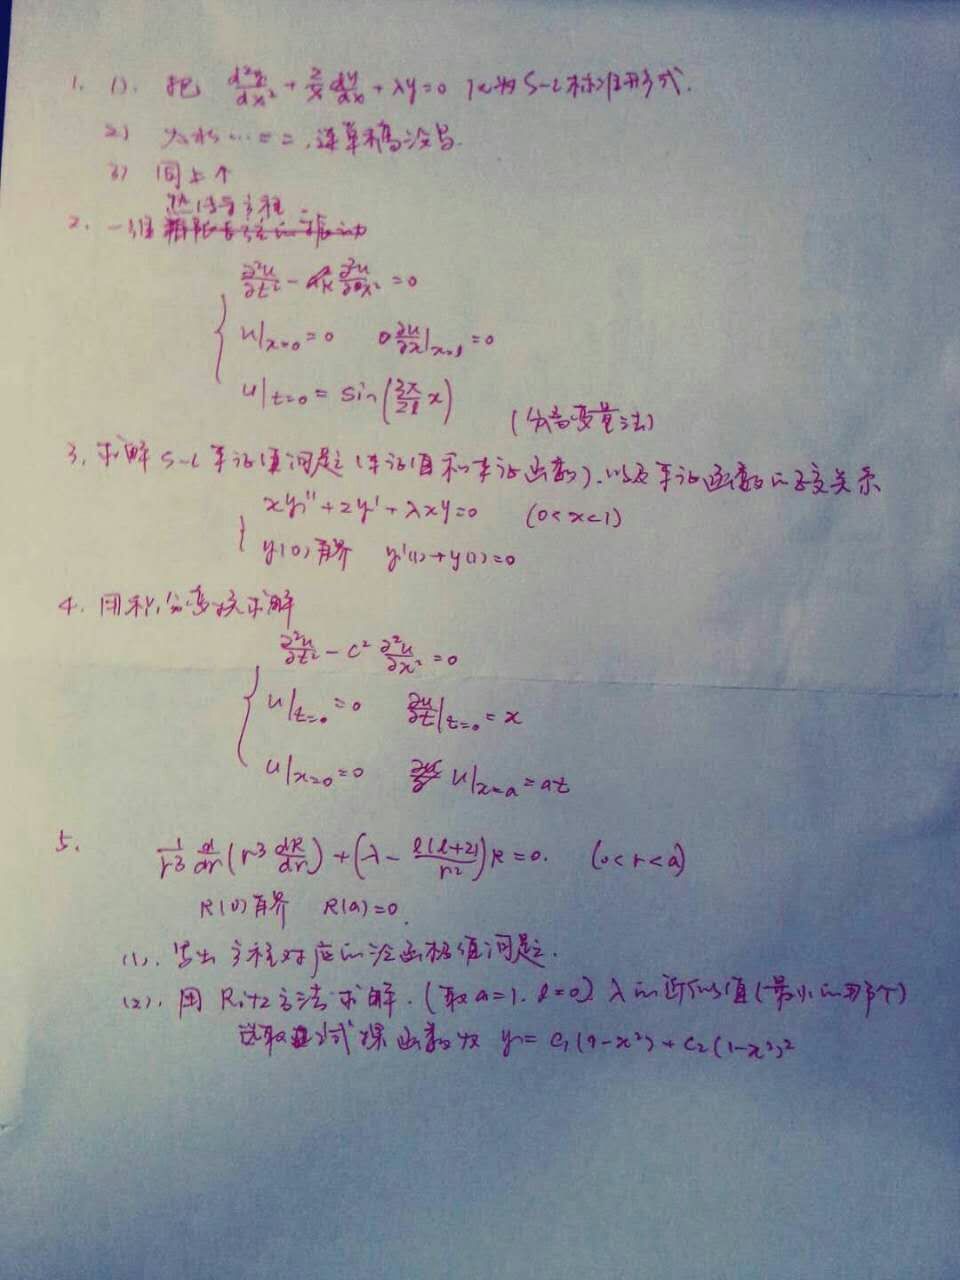 1. 1). 把 d²y/dx² + 2/x dy/dx + λy = 0 化为 S-L 标准形式.
2) 连草稿没写.
3) 同上个
热传导方程
2. 一维
∂²u/∂t² - k ∂²u/∂x² = 0
u|x=0 = 0 ∂u/∂x|x=l = 0
u|t=0 = sin(3π/2l x)
(分离变量法)
3. 求解 S-L 本征值问题 (本征值和本征函数), 以及本征函数的正交关系
xy'' + 2y' + λxy = 0 (0<x<1)
y(0) 有界 y'(1) + y(1) = 0
4. 用积分变换求解
∂²u/∂t² - c² ∂²u/∂x² = 0
u|t=0 = 0 ∂u/∂t|t=0 = x
u|x=0 = 0 u|x=a = at
5. 1/r³ d/dr (r³ dR/dr) + (λ - l(l+2)/r²) R = 0. (0<r<a)
R(0) 有界 R(a) = 0.
(1). 写出方程对应的泛函极值问题.
(2). 用 Ritz 方法求解. (取 a=1. l=0) λ 的近似值 (最小的那个)
选取试探函数为 y = c₁(1-x²) + c₂(1-x²)²